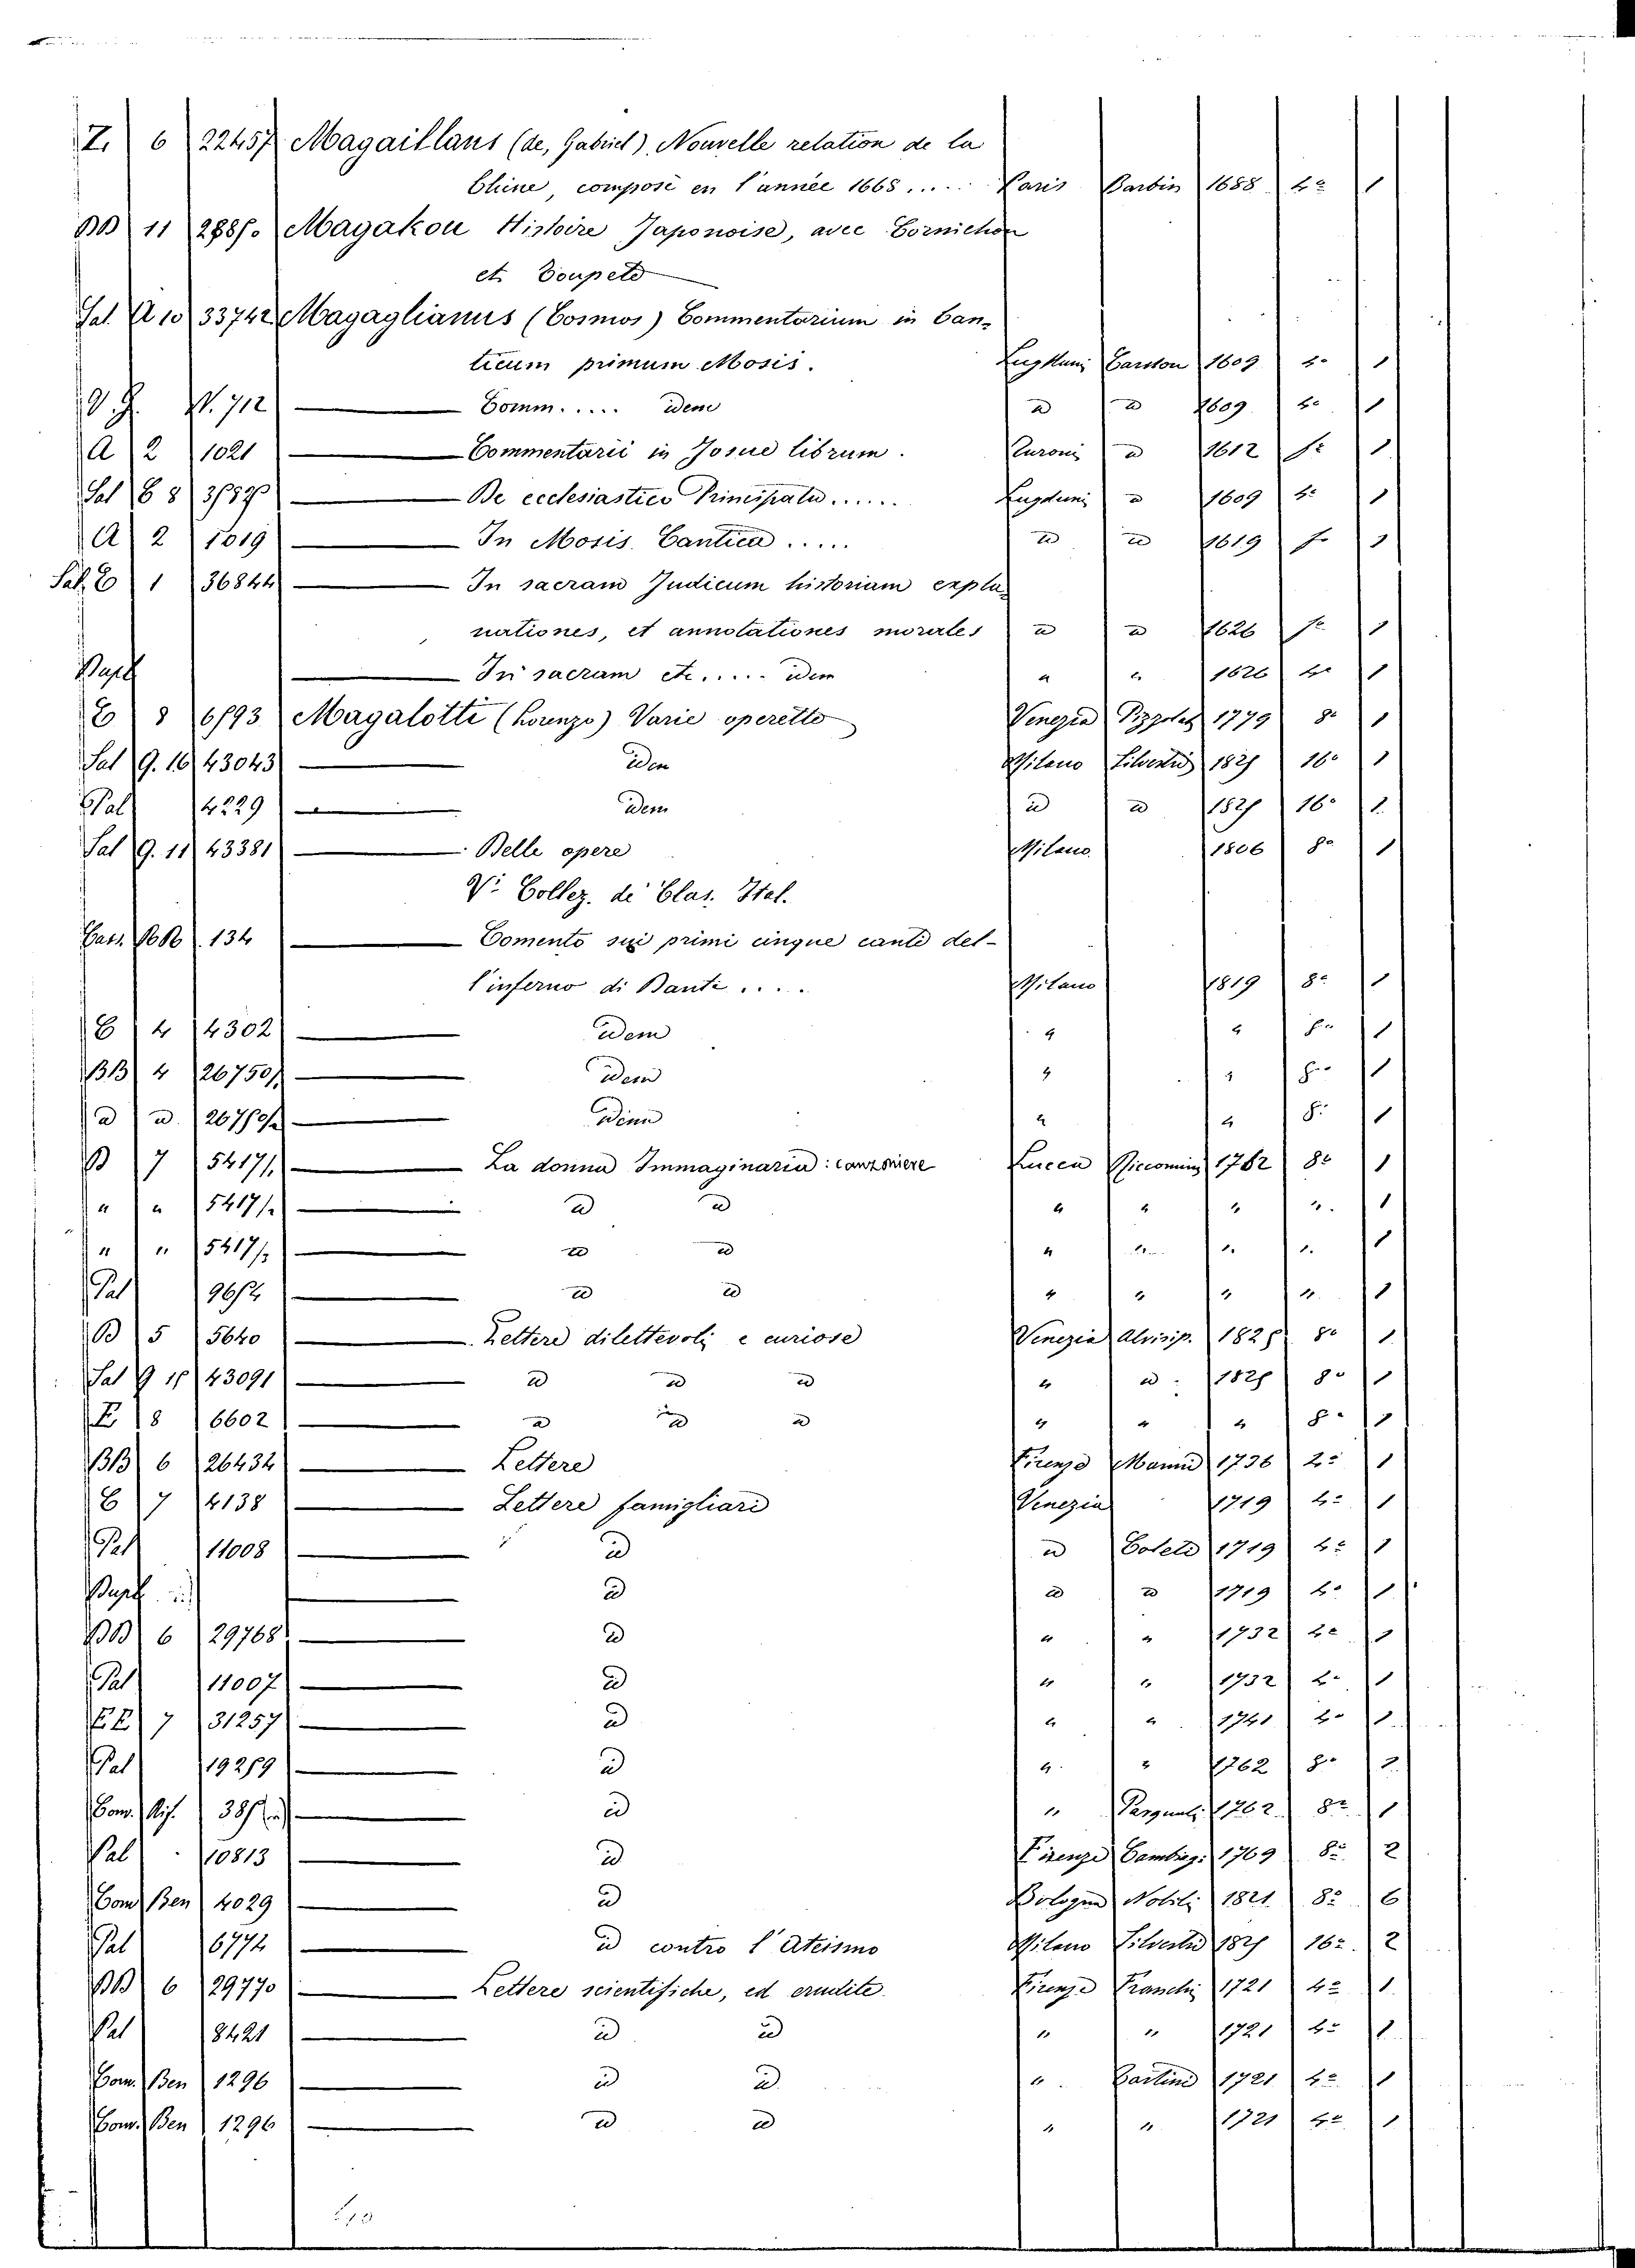 Z. 6 22457 Magaillans (de, Gabriel). Nouvelle relation de la
Chine, composè en l'année 1668..... Paris Barbin 1688 4° 1
BB 11 Magakou Histoire Japonoise, avec Cornichon
et Toupets
Sal. A 10 33742 Magaglianus (Cosmos) Commentarium in Can-
ticum primum Mosis. Lugduni Cardon 1609 4° 1
N. 712 Comm..... idem id id 1609 4° 1
A 2 1021 Commentarii in Josue librum. id 1612 f° 1
Sal B 8 De ecclesiastico Principatu...... Lugduni id 1609 4° 1
A 2 1019 In Mosis Cantica..... id id 1619 f° 1
Sal. E 1 36844 In sacram Judicum historiam expla-
nationes, et annotationes morales id id 1626 f° 1
In sacram etc..... idem " " 1626 1
E 8 6593 Magalotti (Lorenzo) Varie operette Venezia 1779 8° 1
Sal G. 16 43043 idem Milano Silvestri 1825 16° 1
Pal 4229 idem id id 1825 16° 1
Sal G. 11 43381 Belle opere Milano 1806 8° 1
V: Collez. de' Clas. Ital.
134 Comento sui primi cinque canti del-
l'inferno di Dante.... Milano 1819 8° 1
E 4 4302 idem " " 8° 1
BB 4 26750/1 idem " " 8° 1
id id 26750/2 idem " " 8° 1
B 7 5417/1 La donna Immaginaria: canzoniere Lucca Riccomini 1762 8° 1
" " 5417/2 id id " " " " 1
" " 5417/3 id id " " " " 1
Pal 9654 id id " " " " 1
B 5 5640 Lettere dilettevoli e curiose Venezia Alvisip. 1825 8° 1
Sal G 15 43091 id id id " id 1825 8° 1
E 8 6602 id id id " " " 8° 1
BB 6 26434 Lettere Firenze Manni 1736 1
E 7 4138 Lettere famigliari Venezia 1719 4° 1
Pal 11008 id id Coleti 1719 4° 1
id id id 1719 4° 1
BB 6 29768 id " " 1732 4° 1
Pal 11007 id " " 1732 4° 1
EE 7 31257 id " " 1741 4° 1
Pal 19259 id " " 1762 8° 2
Com. Ris. id " Pasquali 1762 8° 1
Pal 10813 id Firenze Cambiag. 1769 8° 2
Com. Ben 4029 id Bologna Nobili 1821 8° 6
Pal 6774 id contro l'Ateismo Milano Silvestri 1825 16° 2
BB 6 29770 Lettere scientifiche, ed erudite Firenze Franchi 1721 4° 1
Pal 8421 id id " " 1721 4° 1
Com. Ben 1296 id id " Tartini 1721 4° 1
Com. Ben 1296 id id " " 1721 4° 1